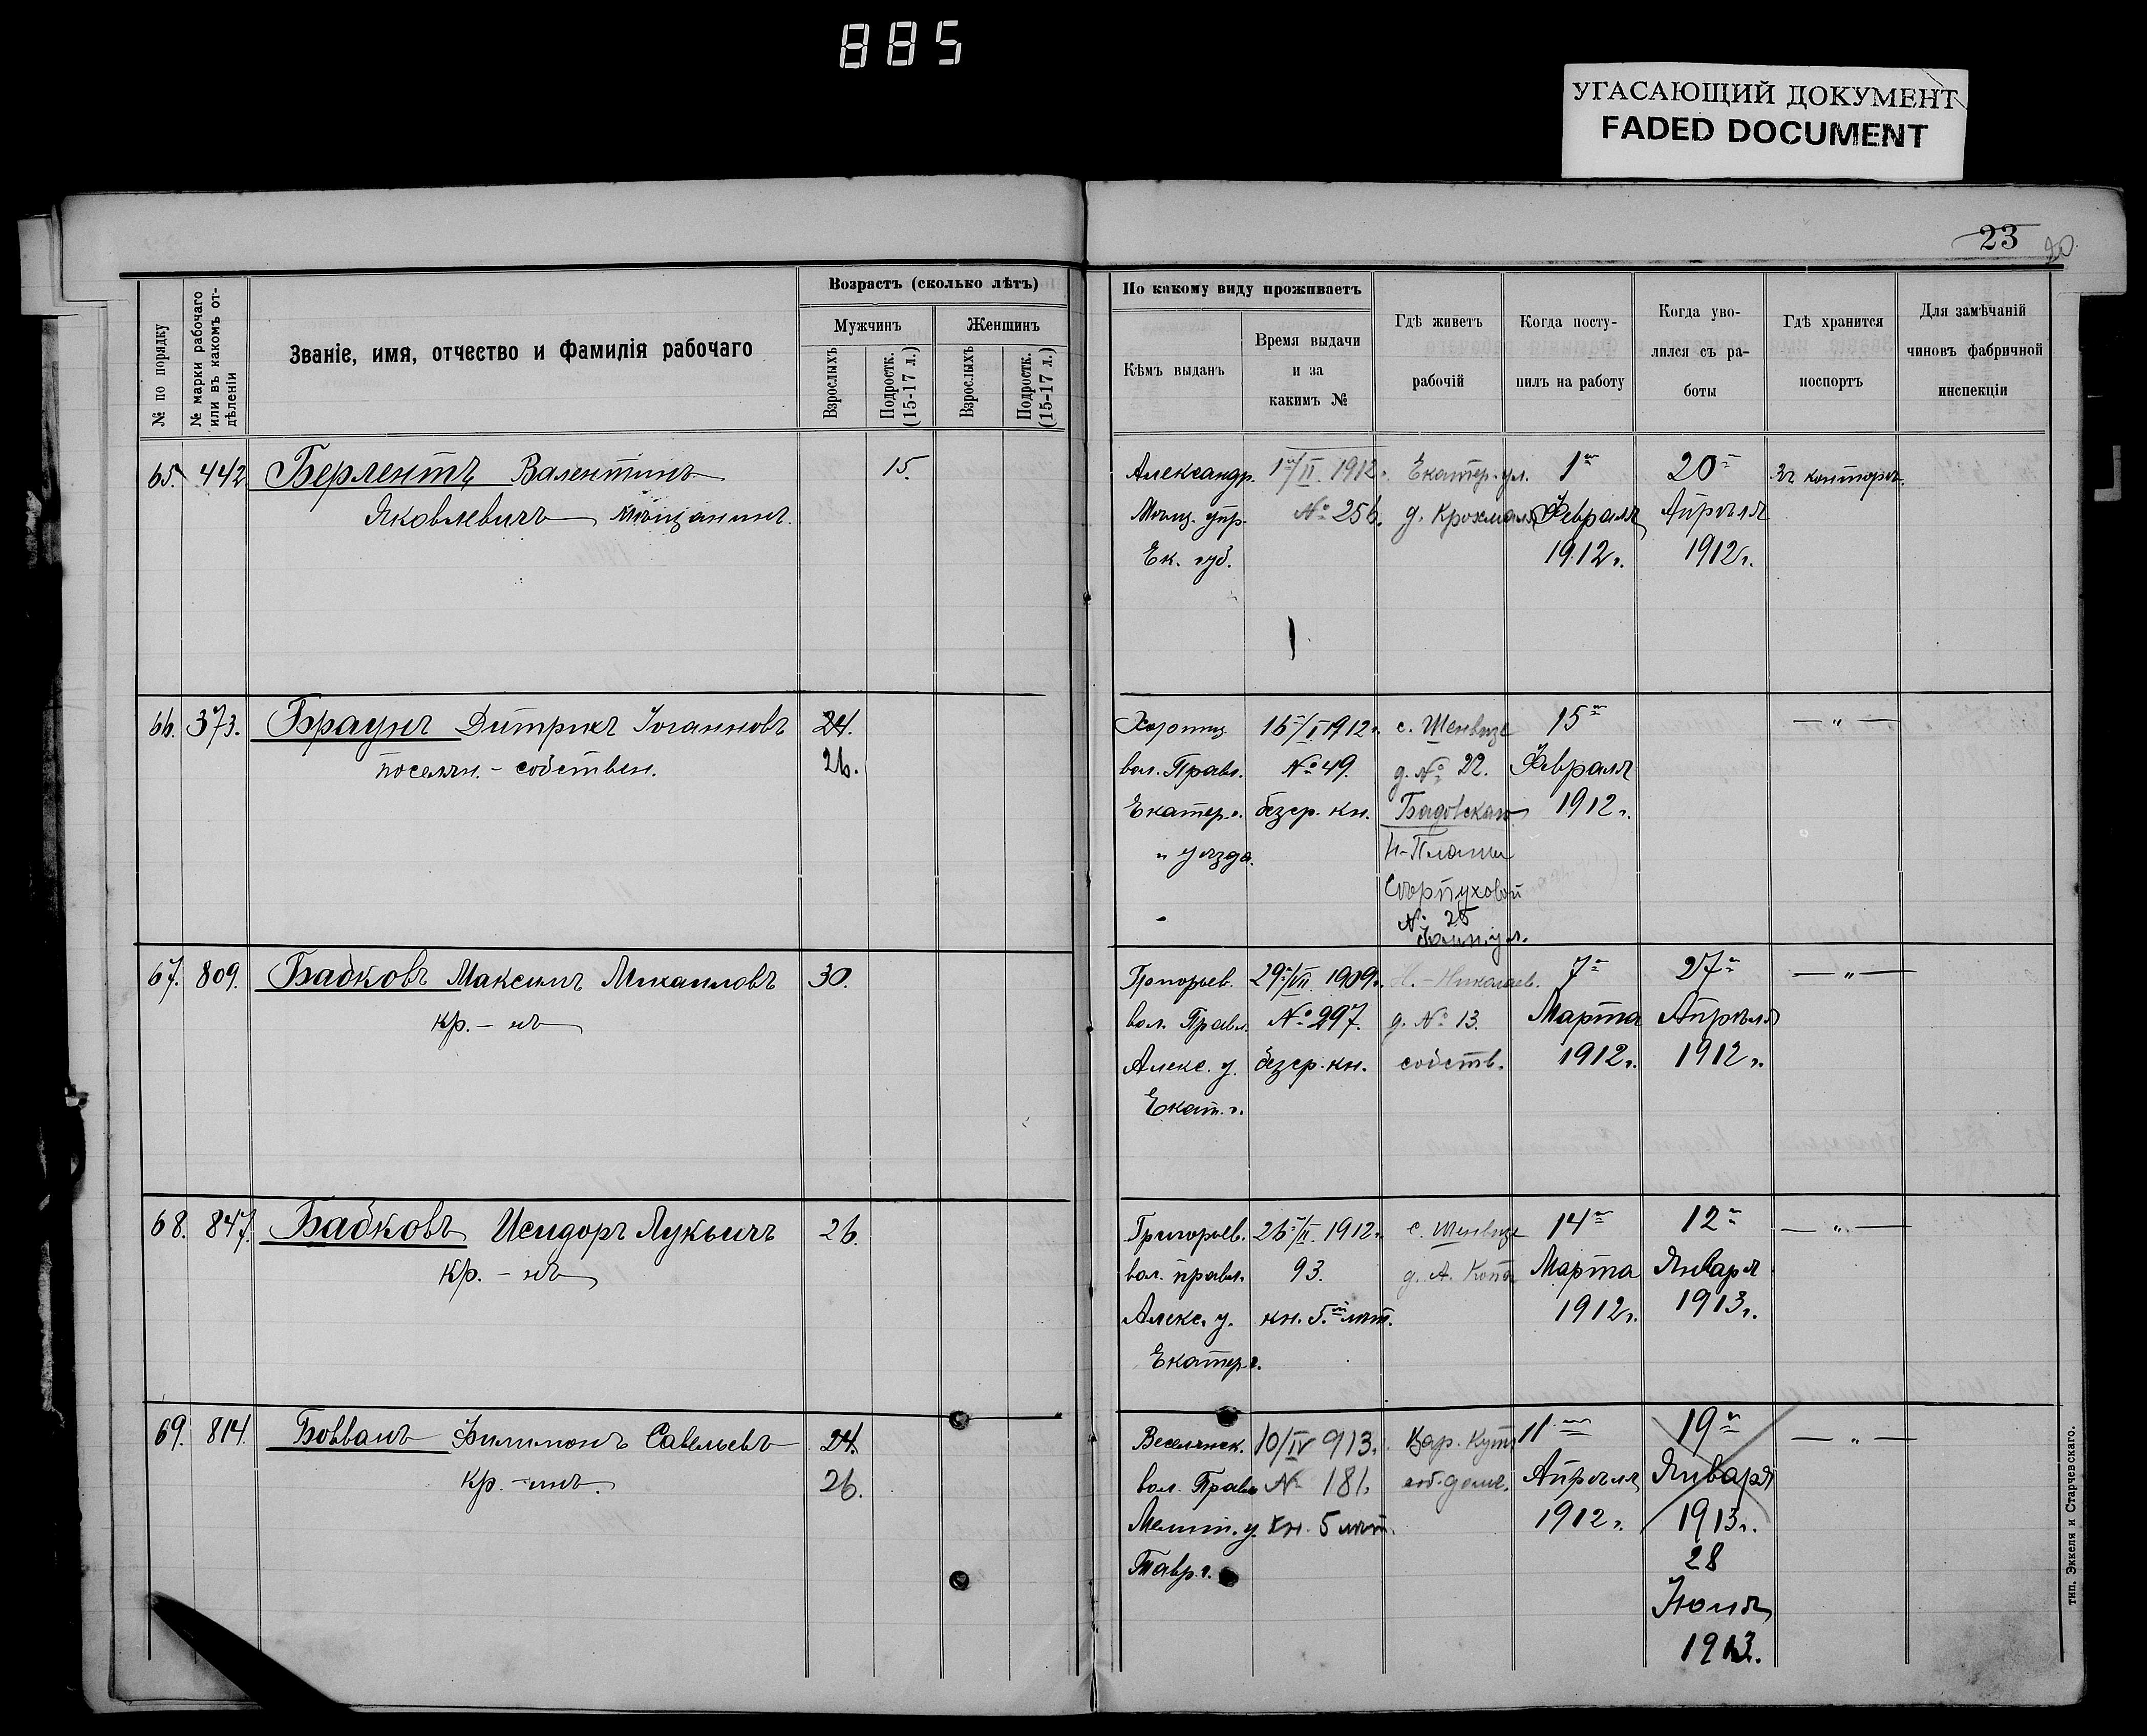 885
УГАСАЮЩИЙ ДОКУМЕНТ
FADED DOCUMENT
23
№ по порядку
№ марки рабочаго
или въ какомъ от-
дѣленіи
Званіе, имя, отчество и фамилія рабочаго
Возрастъ (сколько лѣтъ)
Мужчинъ
Женщинъ
Взрослыхъ
Подростк.
(15-17 л.)
Взрослыхъ
Подростк.
(15-17 л.)
По какому виду проживаетъ
Кѣмъ выданъ
Время выдачи
и за
какимъ №
Гдѣ живетъ
рабочій
Когда посту-
пилъ на работу
Когда уво-
лился съ ра-
боты
Гдѣ хранится
поспортъ
Для замѣчаній
чиновъ фабричной
инспекціи
65. 442 Берлентъ Валентинъ 15.
Яковлевичъ мѣщанинъ.
Александр. 1го/II 1912г. Екатер. ул. 1го 20го Въ конторѣ.
Мѣщ. упр. № 256. д. Крохмаля Февраля Апрѣля
Ек. губ. 1912г. 1912г.
66. 373. Браунъ Дитрихъ Іоганновъ 24.
поселян. - собствен. 26.
Хортиц. 16го/I 1912г. с. Шенвизе 15го — " —
вол. Правл. № 49. д. № 22. Февраля
Екатер. г. безср. кн. Бадовскаго 1912г.
" уѣзда.
№ 25
67. 809. Бабковъ Максимъ Михаиловъ 30.
кр. - нъ
Григорьев. 29го/VII 1909г. Н. - Николаев. 7го 27го — " —
вол. Правл. № 297. д. № 13. Марта Апрѣля
Алекс. у. безср. кн. собств. 1912г. 1912г.
Екат. г.
68. 847. Бабковъ Исидоръ Лукьичъ 26.
кр. - нъ
Григорьев. 26го/II 1912г. с. Шенвизе 14го 12го — " —
вол. правл. 93. д. А. Копа Марта Января
Алекс. у. кн. 5ти лѣт. 1912г. 1913г.
Екатер. г.
69. 814. Бовванъ Филимонъ Савельевъ 24.
кр. - инъ. 26.
Веселянск. 10/IV 913г. Цар. Кутъ 11го 19го — " —
вол. Правл. № 181. соб. домъ. Апрѣля Января
Мелит. у. кн. 5 лѣт. 1912г. 1913г.
Тавр. г. 28
Іюня
1913.
тип. Эккеля и Старчевскаго.